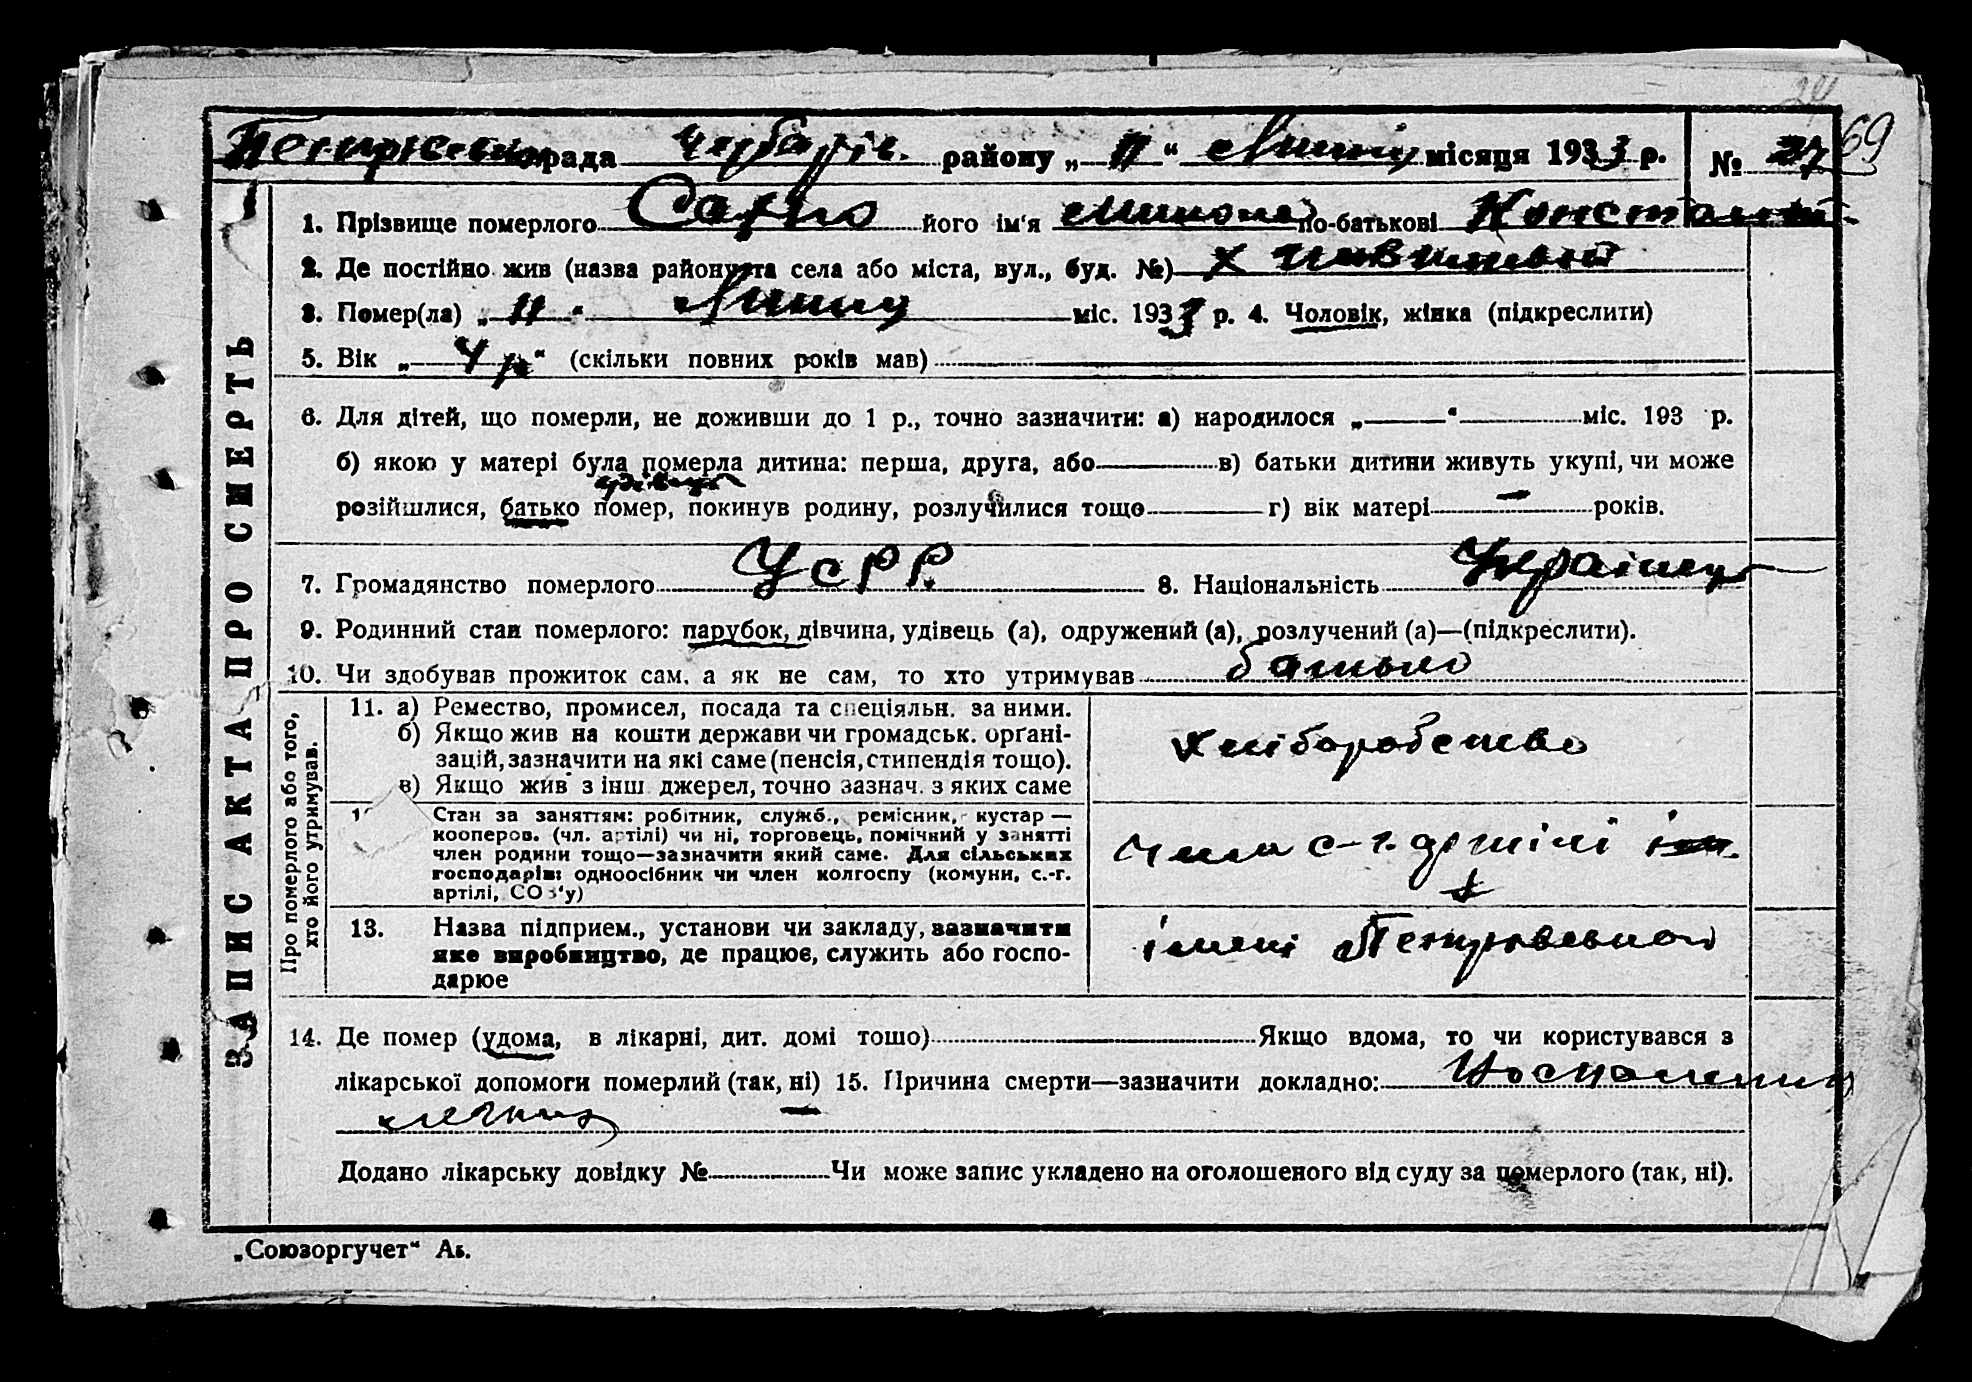 рада Чубарів. району „ 11 “ місяця 1933 р. № 27 69
ЗАПИС АКТА ПРО СМЕРТЬ
1. Прізвище померлого його ім'я по-батькові
2. Де постійно жив (назва району та села або міста, вул., буд. №) х
3. Помер(ла) „ 11 “ міс. 1933 р. 4. Чоловік, жінка (підкреслити)
5. Вік „ 4 р “ (скільки повних років мав)
6. Для дітей, що померли, не доживши до 1 р., точно зазначити: а) народилося „ “ міс. 193 р.
б) якою у матері була померла дитина: перша, друга, або в) батьки дитини живуть укупі, чи може
удівець
розійшлися, батько помер, покинув родину, розлучилися тощо г) вік матері — років.
7. Громадянство померлого УСРР. 8. Національність Українец
9. Родинний стан померлого: парубок, дівчина, удівець (а), одружений (а), розлучений (а)—(підкреслити).
10. Чи здобував прожиток сам, а як не сам, то хто утримував батько
Про померлого або того, хто його утримував.
11. а) Ремество, промисел, посада та спеціяльн. за ними.
б) Якщо жив на кошти держави чи громадськ. орґані-
зацій, зазначити на які саме (пенсія, стипендія тощо).
в) Якщо жив з інш. джерел, точно зазнач. з яких саме
хліборобство
Стан за заняттям: робітник, служб., ремісник, кустар —
кооперов. (чл. артілі) чи ні, торговець, помічний у занятті
член родини тощо—зазначити який саме. Для сільських
господарів: одноосібник чи член колгоспу (комуни, с.-г.
артілі, СОЗ'у)
Член с-г. артілі
13. Назва підприєм., установи чи закладу, зазначити
яке виробництво, де працює, служить або госпо-
дарює
імені
14. Де помер (удома, в лікарні, дит. домі тощо) Якщо вдома, то чи користувався з
лікарської допомоги померлий (так, ні) 15. Причина смерти—зазначити докладно:
Додано лікарську довідку № Чи може запис укладено на оголошеного від суду за померлого (так, ні).
„Союзоргучет“